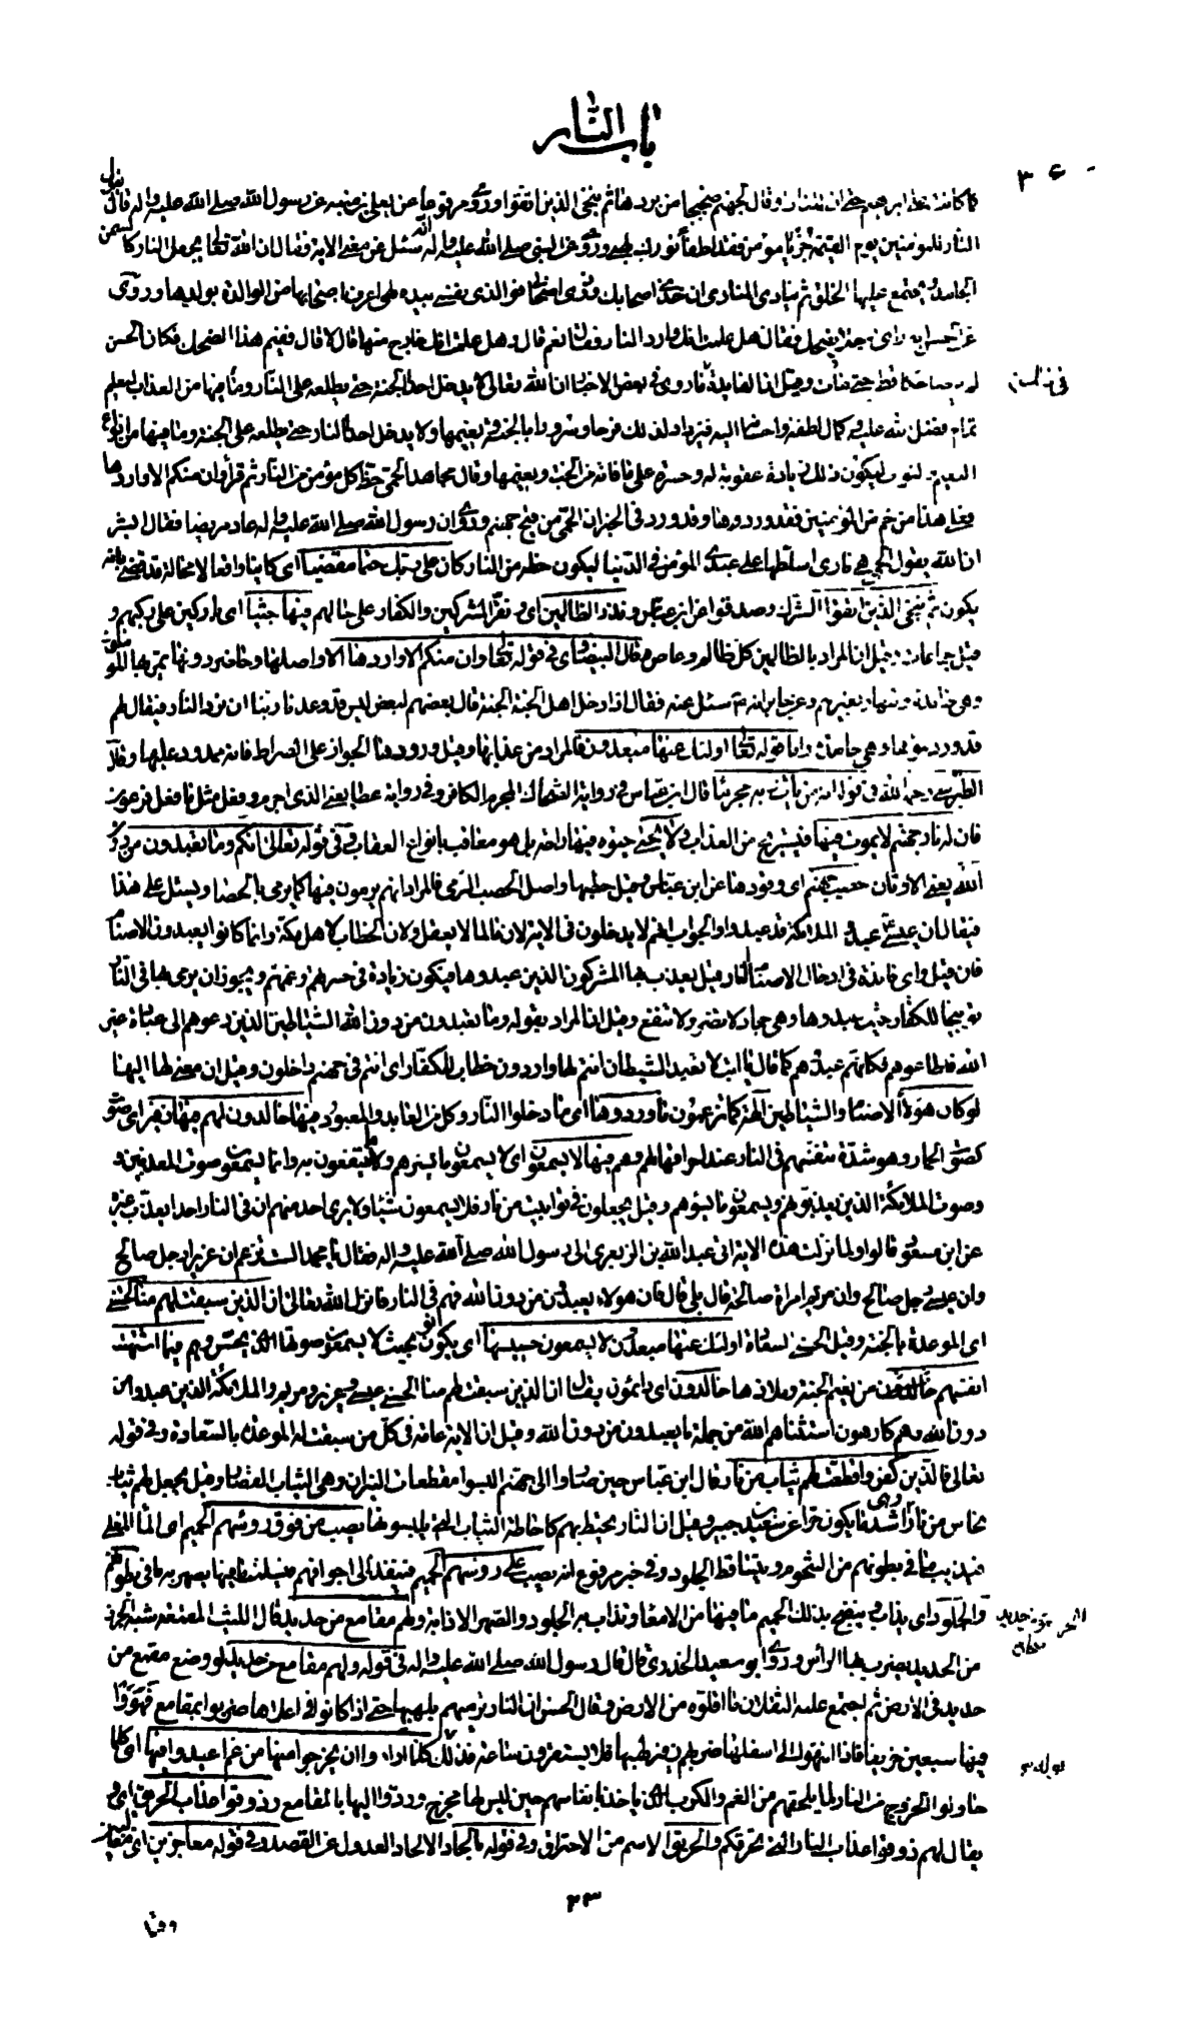 باب النار
٣٤٠
كما كانت على ابراهيم حتى ان للنار او قال لجهنم ضجيجا من بردها ثم ننجي الذين اتقوا وروي مرفوعا عن يعلى بن منبه عن رسول الله صلى الله عليه واله قال تقول
النار للمؤمنين يوم القيمة جز يا مؤمن فقد اطفأ نورك لهبي وروي عن النبي صلى الله عليه واله انه سئل عن معنى الاية فقال ان الله تعالى يجعل النار كالسمن
الجامد ويجتمع عليها الخلق ثم ينادي المنادي ان خذي اصحابك وذري اصحابي فوالذي نفسي بيده لهي اعرف باصحابها من الوالدة بولدها وروي
عن الحسن انه راى رجلا يضحك فقال هل علمت انك وارد النار فقال نعم قال وهل علمت انك خارج منها قال لا قال ففيم هذا الضحك فكان الحسن
لم ير ضاحكا قط حتى مات وقيل ان الفايدة في ذلك ما روي في بعض الاخبار ان الله تعالى لا يدخل احدا الجنة حتى يطلعه على النار وما فيها من العذاب ليعلم
تمام فضل الله عليه وكمال لطفه واحسانه اليه فيزداد لذلك فرحا وسرورا بالجنة ونعيمها ولا يدخل احدا النار حتى يطلعه على الجنة وما فيها من انواع
النعيم والثواب ليكون ذلك زيادة عقوبة له وحسرة على ما فاته من الجنة ونعيمها وقال مجاهد الحمى حظ كل مؤمن من النار ثم قرأ وان منكم الا واردها
فعلى هذا من حم من المؤمنين فقد وردها وقد ورد في الخبر ان الحمى من فيح جهنم وروي ان رسول الله صلى الله عليه واله عاد مريضا فقال ابشر
ان الله يقول الحمى هي ناري اسلطها على عبدي المؤمن في الدنيا ليكون حظه من النار كان على ربك حتما مقضيا اي كاينا واقعا لا محالة قد قضى بانه
يكون ثم ننجي الذين اتقوا الشرك وصدقوا عن ابن عباس ونذر الظالمين اي ونقر المشركين والكفار على حالهم فيها جثيا اي باركين على ركبهم و
قيل جماعات وقيل ان المراد بالظالمين كل ظالم وعاص وقال البيضاوي في قوله تعالى وان منكم الا واردها الا واصلها وحاضر دونها يمر بها المؤمنون
وهي خامدة وتنهار بغيرهم وعن جابر انه ع سئل عنه فقال اذا دخل اهل الجنة الجنة قال بعضهم لبعض اليس قد وعدنا ربنا ان نرد النار فيقال لهم
قد وردتموها وهي خامدة واما قوله تعالى اولئك عنها مبعدون فالمراد من عذابها وقيل ورودها الجواز على الصراط فانه ممدود عليها وقال
الطبرسي رحمه الله في قوله انه من يات ربه مجرما قال ابن عباس في رواية الضحاك المجرم الكافر وفي رواية عطا يعني الذي اجرم وفعل مثل ما فعل فرعون
فان له نار جهنم لا يموت فيها فيستريح من العذاب ولا يحيى حيوة فيها راحة بل هو معاقب بانواع العقاب وفي قوله تعالى انكم وما تعبدون من دون
الله يعني الاوثان حصب جهنم اي وقودها عن ابن عباس وقيل حطبها واصل الحصب الرمي فالمراد انهم يرمون فيها كما يرمى بالحصا ويسئل على هذا
فيقال ان عيسى عبد والملائكة قد عبدوا والجواب انهم لا يدخلون في الاية لان ما لما لا يعقل ولان الخطاب لاهل مكة وانما كانوا يعبدون الاصنام
فان قيل واي فائدة في ادخال الاصنام النار قيل يعذب بها المشركون الذين عبدوها فيكون زيادة في حسرتهم وغمهم ويجوز ان يرمى بها في النار
توبيخا للكفار حيث عبدوها وهي جماد لا تضر ولا تنفع وقيل ان المراد بقوله وما تعبدون من دون الله الشياطين الذين دعوهم الى عبادة غير
الله فاطاعوهم فكانهم عبدوهم كما قال يا ابت لا تعبد الشيطان انتم لها واردون خطاب للكفار اي انتم في جهنم داخلون وقيل ان معنى لها اليها
لو كان هؤلاء الاصنام والشياطين الهة كما تزعمون ما وردوها اي ما دخلوا النار وكل من العابد والمعبود فيها خالدون لهم فيها زفير اي صوت
كصوت الحمار وهو شدة تنفسهم في النار عند احراقها لهم وهم فيها لا يسمعون اي لا يسمعون ما يسرهم ولا ما ينتفعون به وانما يسمعون صوت المعذبين و
وصوت الملائكة الذين يعذبونهم ويسمعون ما يسوؤهم وقيل يجعلون في توابيت من نار فلا يسمعون شيئا ولا يرى احد منهم ان في النار احدا يعذب غيره
عن ابن مسعود قالوا ولما نزلت هذه الاية اتى عبد الله بن الزبعرى الى رسول الله صلى الله عليه واله فقال يا محمد الست تزعم ان عزيرا رجل صالح
وان عيسى رجل صالح وان مريم امراة صالحة قال بلى قال فان هؤلاء يعبدون من دون الله فهم في النار فانزل الله تعالى ان الذين سبقت لهم منا الحسنى
اي الموعدة بالجنة وقيل الحسنى السعادة اولئك عنها مبعدون لا يسمعون حسيسها اي يكونون بحيث لا يسمعون صوتها الذي يحس وهم فيما اشتهت
انفسهم خالدون من نعيم الجنة وملاذها خالدون اي دائمون يقال ان الذين سبقت لهم منا الحسنى عيسى وعزير ومريم والملائكة الذين عبدوا من
دون الله وهم كارهون استثناهم الله من جملة ما يعبدون من دون الله وقيل ان الاية عامة في كل من سبقت له الموعدة بالسعادة وفي قوله
تعالى فالذين كفروا قطعت لهم ثياب من نار قال ابن عباس حين صاروا الى جهنم البسوا مقطعات النيران وهي الثياب القصار وقيل يجعل لهم ثياب
نحاس من نار وهي اشد ما يكون حرا عن سعيد بن جبير وقيل ان النار تحيط بهم كاحاطة الثياب التي يلبسونها يصب من فوق رؤسهم الحميم اي الماء المغلي
فيذيب ما في بطونهم من الشحوم ويتساقط الجلود وفي خبر مرفوع انه يصب على رؤسهم الحميم فينفذ الى اجوافهم فيسلت ما فيها يصهر به ما في بطونهم
والجلود اي يذاب وينضج بذلك الحميم ما فيها من الامعاء وتذاب به الجلود والصهر الاذابة ولهم مقامع من حديد قال الليث المقمعة شبه الجرز
من الحديد يضرب بها الراس وروى ابو سعيد الخدري قال قال رسول الله صلى الله عليه واله في قوله ولهم مقامع من حديد لو وضع مقمع من
حديد في الارض ثم اجتمع عليه الثقلان ما اقلوه من الارض وقال الحسن ان النار ترميهم بلهبها حتى اذا كانوا في اعلاها ضربوا بمقامع فهووا
فيها سبعين خريفا فاذا انتهوا الى اسفلها ضربهم زفير لهبها فلا يستقرون ساعة فذلك قوله كلما ارادوا ان يخرجوا منها من غم اعيدوا فيها اي كلما
حاولوا الخروج من النار لما يلحقهم من الغم والكرب الذي ياخذ بانفاسهم حين ليس لها مخرج وردوا اليها بالمقامع وذوقوا عذاب الحريق اي و
يقال لهم ذوقوا عذاب النار التي تحرقكم والحريق الاسم من الاحتراق وفي قوله بالحاد الالحاد العدول عن القصد وفي قوله معاجزين اي مغالبين
٢٣